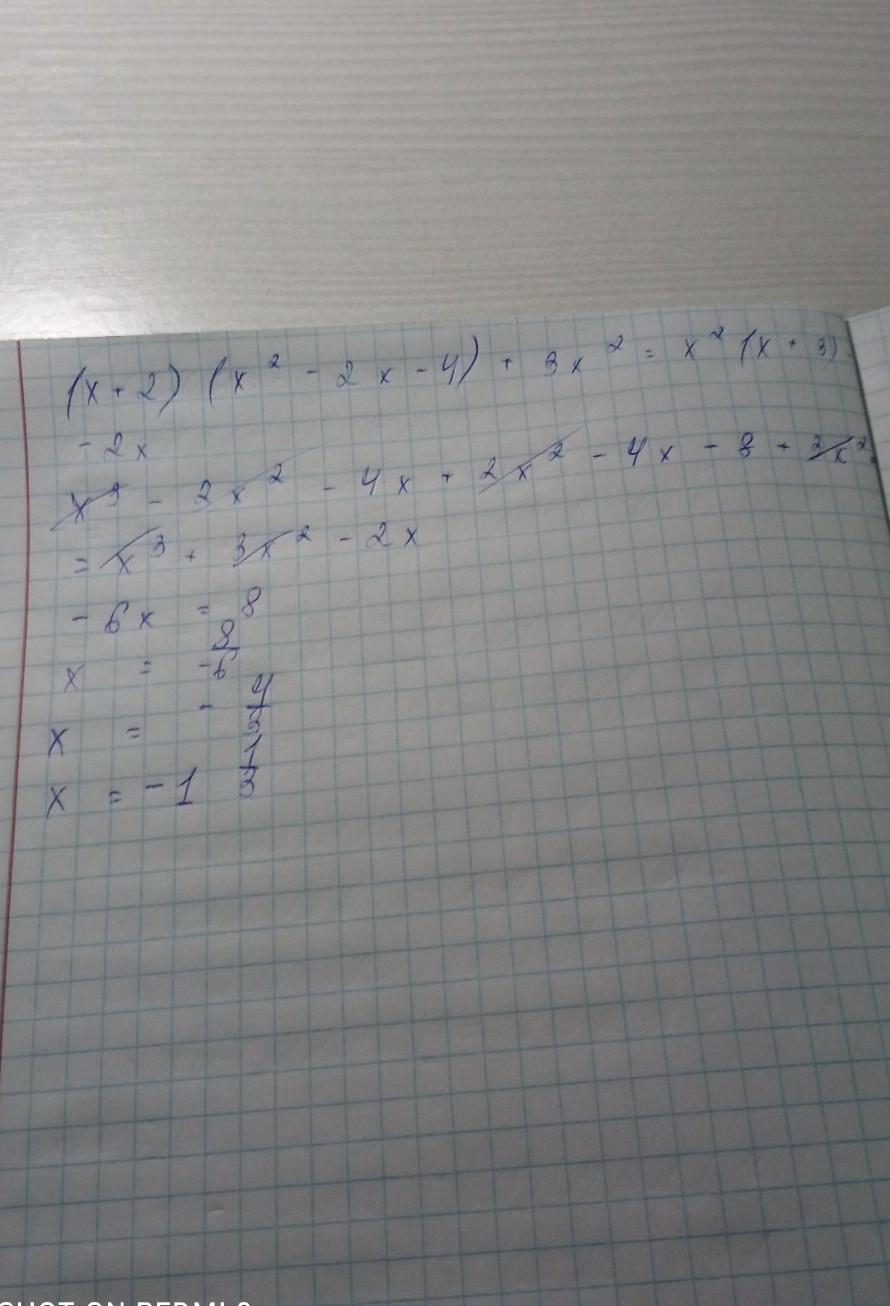 (x + 2) (x² - 2x - 4) + 3x² = x² (x + 3)
- 2x
x³ - 2x² - 4x + 2x² - 4x - 8 + 3x²
= x³ + 3x² - 2x
- 6x = 8
x = 8/-6
x = - 4/3
x = - 1 1/3